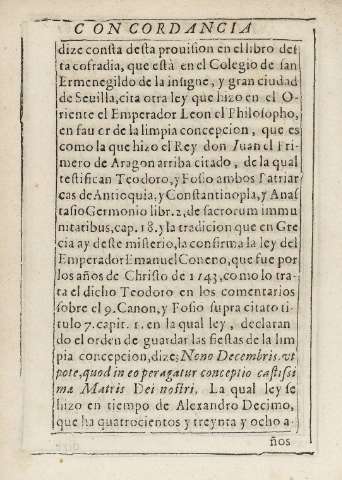 CONCORDANCIA
dize consta desta prouision en el libro des
ta cofradia, que està en el Colegio de san
Ermenegildo de la insigne, y gran ciudad
de Seuilla, cita otra ley que hizo en el O-
riente el Emperador Leon el Philosopho,
en fauor de la limpia concepcion, que es
como la que hizo el Rey don Iuan el Pri-
mero de Aragon arriba citado, de la qual
testifican Teodoro, y Fosio ambos Patriar
cas de Antioquia, y Constantinopla, y Anas
tasio Germonio libr. 2. de sacrorum immu
nitatibus, cap. 18. y la tradicion que en Gre
cia ay deste misterio, la confirma la ley del
Emperador Emanuel Coneno, que fue por
los años de Christo de 1143, como lo tra-
ta el dicho Teodoro en los comentarios
sobre el 9. Canon, y Fosio supra citato ti
tulo 7. capit. 1. en la qual ley, declaran
do el orden de guardar las fiestas de la lim
pia concepcion, dize; Nono Decembris vt
pote, quod in eo peragatur conceptio castiss
ma Matris Dei nostri. La qual ley se
hizo en tiempo de Alexandro Decimo,
que ha quatrocientos y treynta y ocho a-
ños